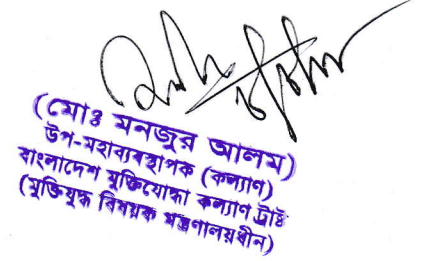 (মোঃ মনজুর আলম)
উপ-মহাব্যবস্থাপক (কল্যাণ)
বাংলাদেশ মুক্তিযোদ্ধা কল্যাণ ট্রাষ্ট
(মুক্তিযুদ্ধ বিষয়ক মন্ত্রণালয়ধীন)